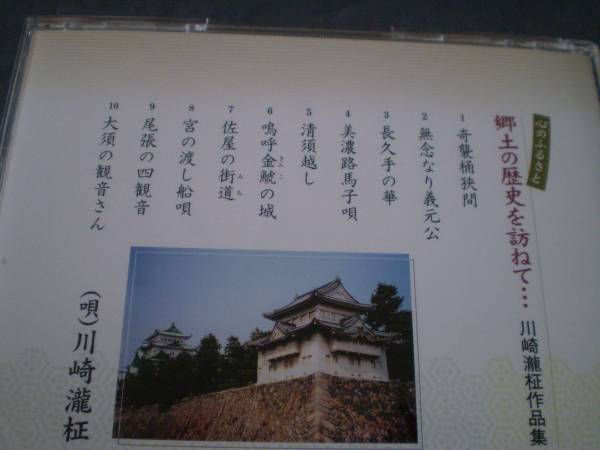 心のふるさと
郷土の歴史を訪ねて… 川崎瀧柾作品集
1 奇襲桶狭間
2 無念なり義元公
3 長久手の華
4 美濃路馬子唄
5 清須越し
6 嗚呼金鯱の城
きんこ
7 佐屋の街道
みち
8 宮の渡し船唄
9 尾張の四観音
10 大須の観音さん
(唄)川崎瀧柾